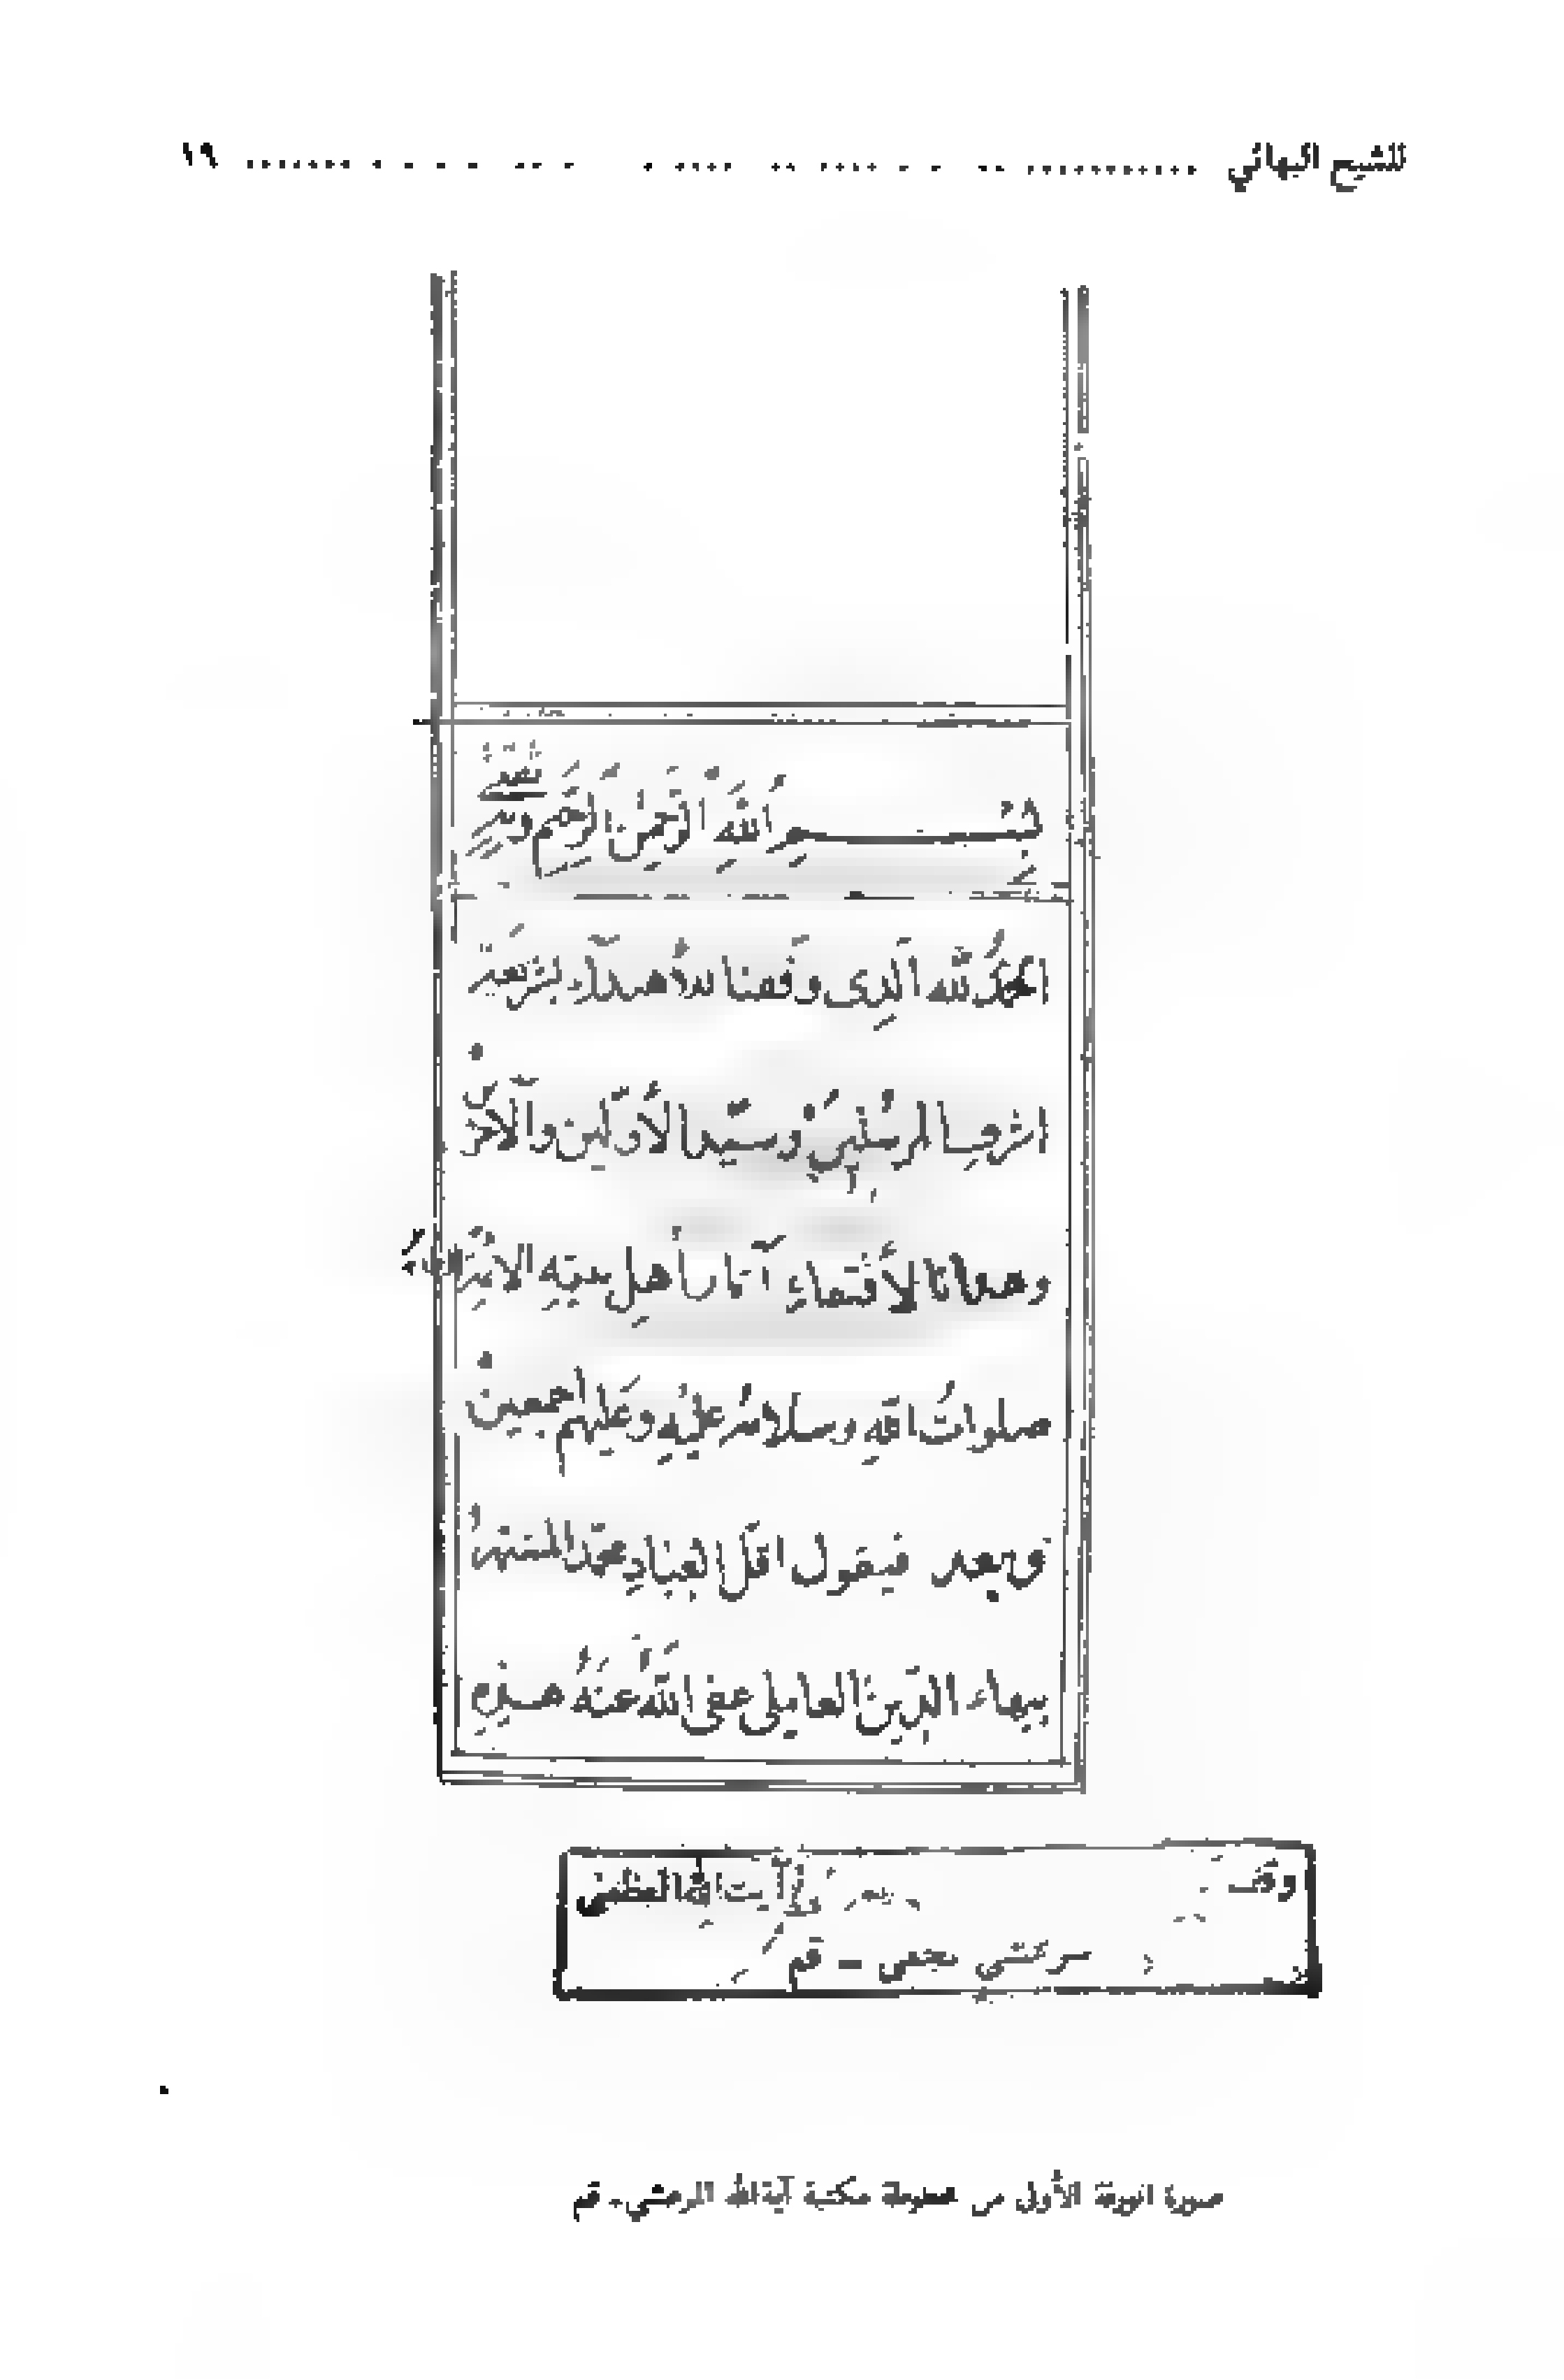 للشيخ البهائي ................................ ١٩
بِسْمِ اللَّهِ الرَّحْمٰنِ الرَّحِيمِ وبه
الحمدُ لله الَّذِى وفقنا للأهتدآء بشريعة
اشرف المرسَلينَ وسيّد الأوّلين والآخرين
وهدانا لأقتفاءِ آثار أهلِ بيتِهِ الأئمّة
صلواتُ اللّهِ وسلامُه عليْهِ وعَليهم أجمعين
وبعد فيقول اقلّ العِبادِ محمّد المشتهرُ
ببهاء الدّين العامِلى عفى اللّهُ عَنهُ هذِهِ
وقف آيت الله العظمى
مرعشي نجفي - قم
صورة الورقة الأولى من مخطوطة مكتبة آية الله المرعشي - قم